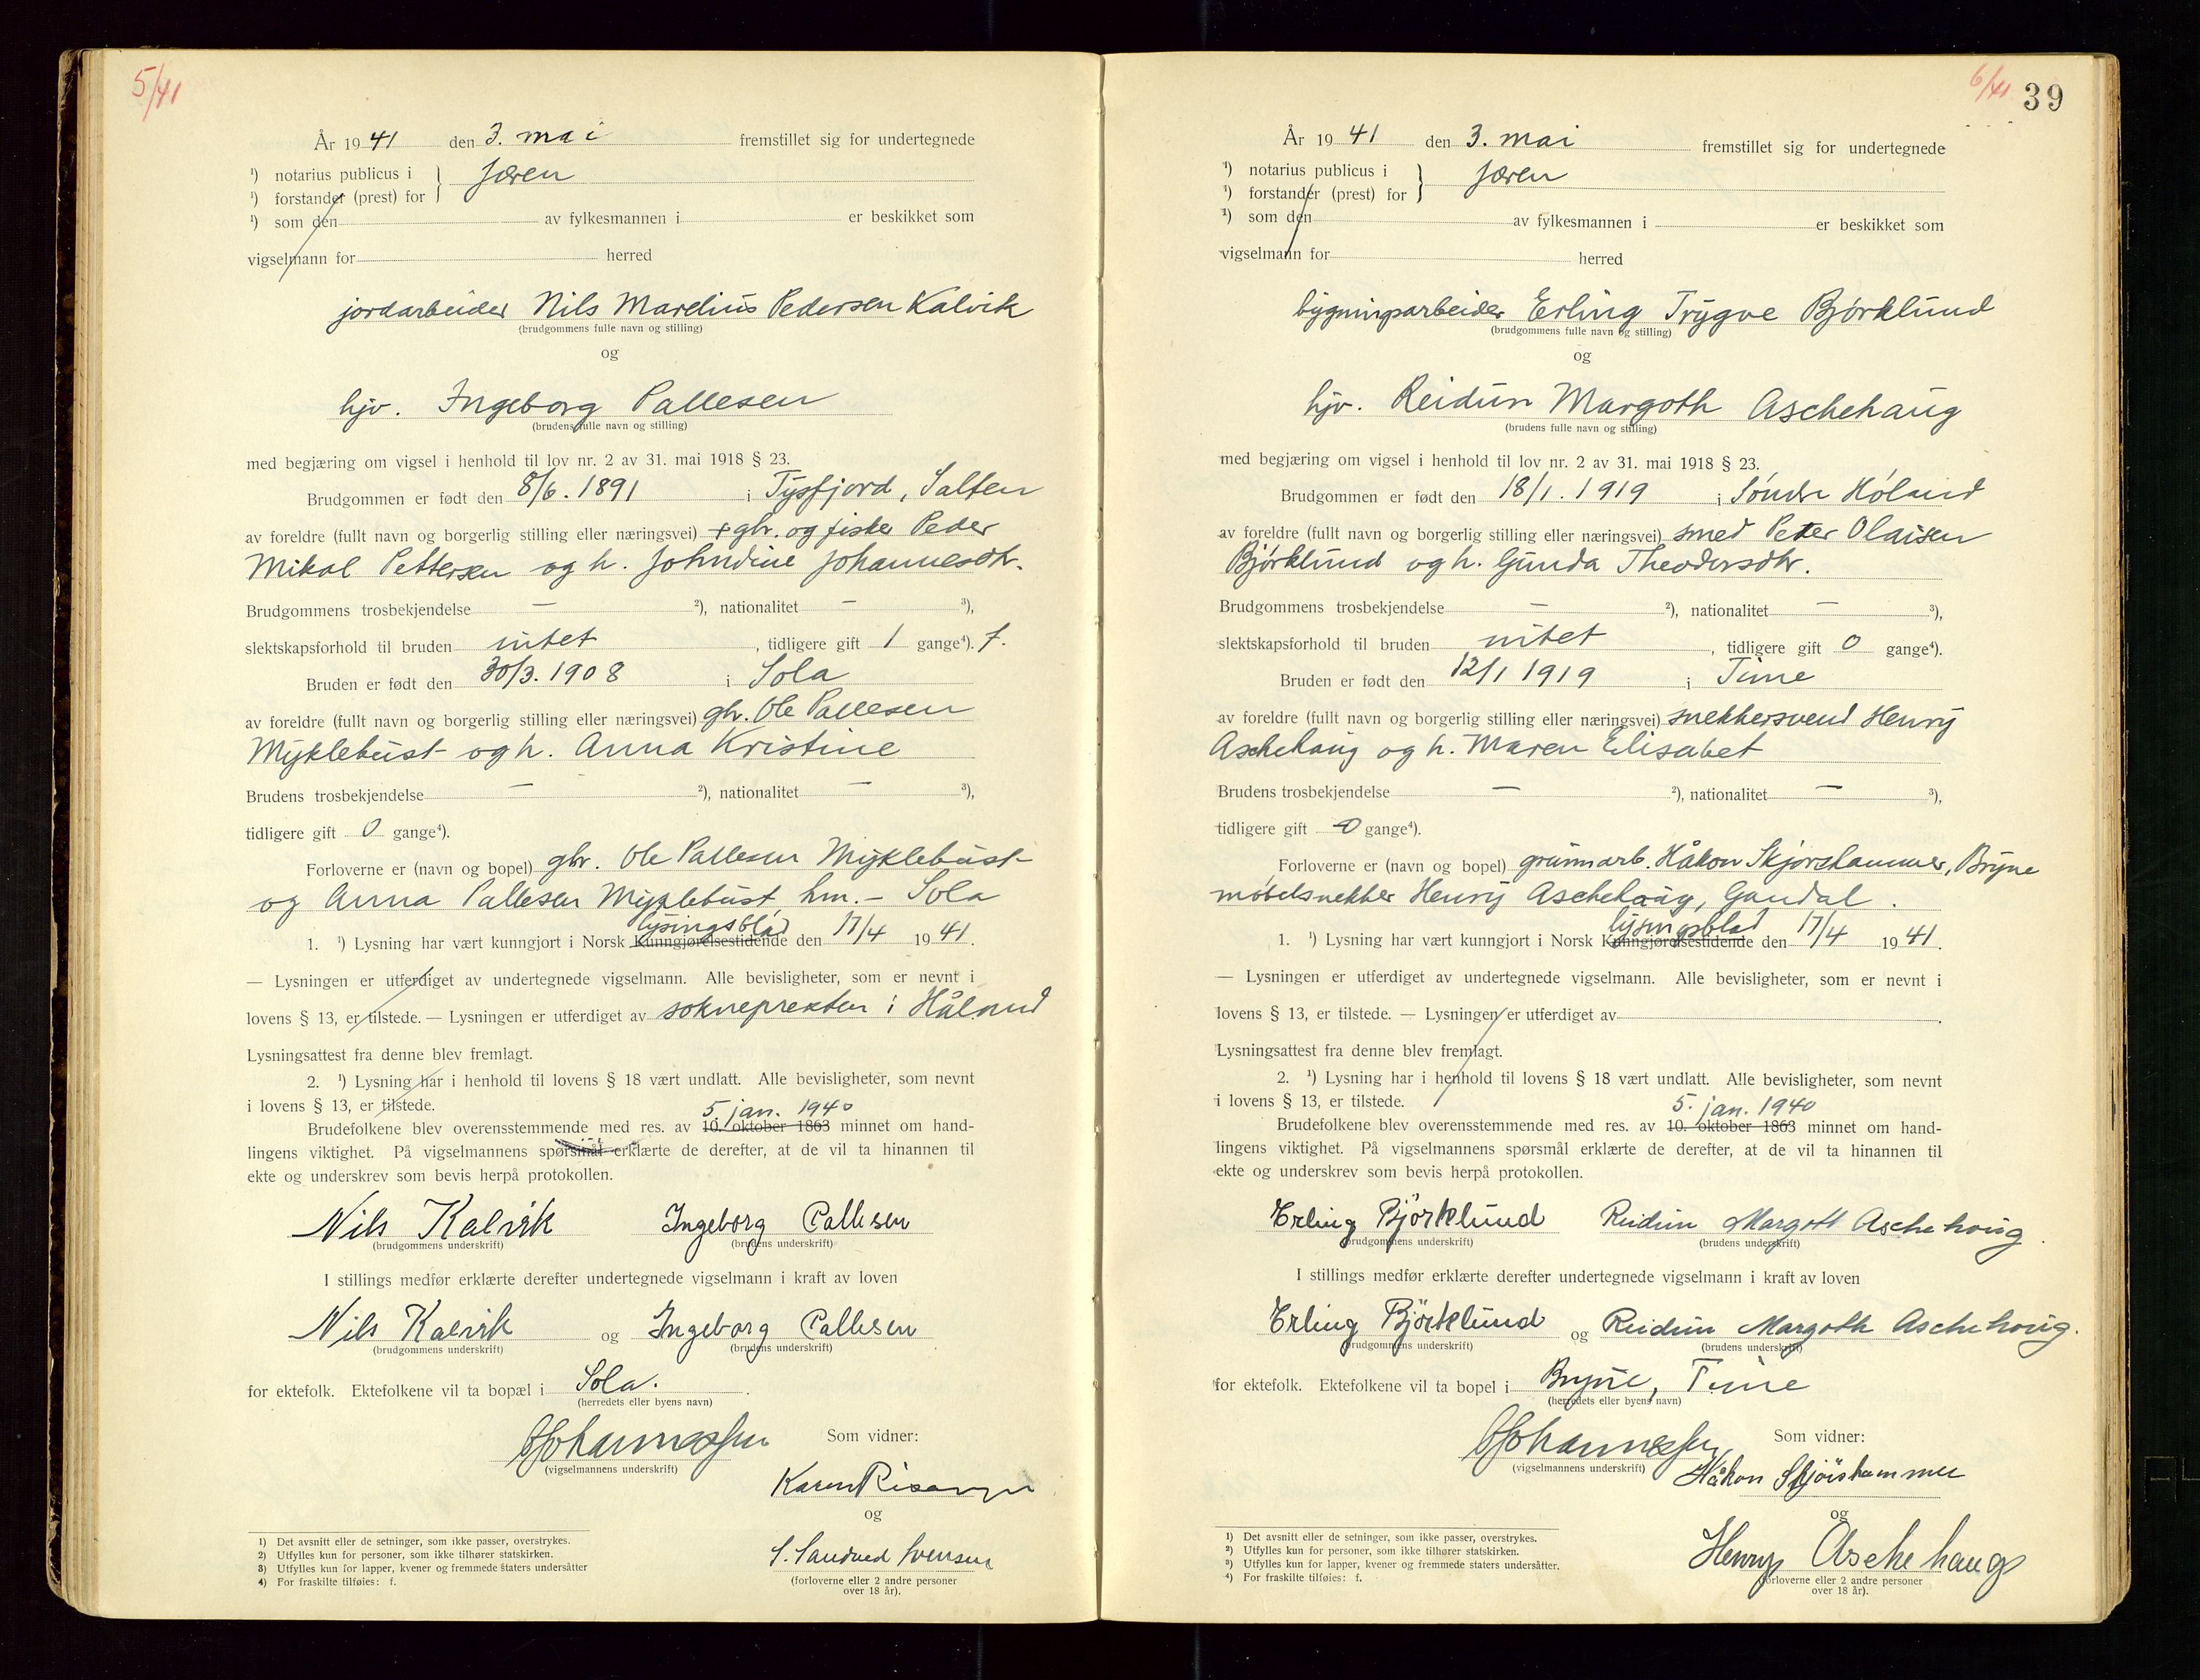 5/41
År 1941 den 3. mai fremstillet sig for undertegnede
¹) notarius publicus i } Jæren
¹) forstander (prest) for
¹) som den av fylkesmannen i er beskikket som
vigselmann for herred
jordarbeider Nils Marelius Pedersen Kalvik
(brudgommens fulle navn og stilling)
og
hjv. Ingeborg Pallesen
(brudens fulle navn og stilling)
med begjæring om vigsel i henhold til lov nr. 2 av 31. mai 1918 § 23.
Brudgommen er født den 8/6. 1891 i Tysfjord, Salten
av foreldre (fullt navn og borgerlig stilling eller næringsvei) + gbr. og fisker Peder
Mikal Pettersen og h. Johndine Johannesdtr.
Brudgommens trosbekjendelse — ²), nationalitet — ³),
slektskapsforhold til bruden intet, tidligere gift 1 gange⁴). f.
Bruden er født den 30/3. 1908 i Sola
av foreldre (fullt navn og borgerlig stilling eller næringsvei) gbr. Ole Pallesen
Myklebust og h. Anna Kristine
Brudens trosbekjendelse — ²), nationalitet — ³),
tidligere gift 0 gange⁴).
Forloverne er (navn og bopel) gbr. Ole Pallesen Myklebust
og Anna Pallesen Myklebust hm. - Sola
lysingsblad
1. ¹) Lysning har vært kunngjort i Norsk Kunngjørelsestidende den 17/4 1941.
— Lysningen er utferdiget av undertegnede vigselmann. Alle bevisligheter, som er nevnt i
lovens § 13, er tilstede. — Lysningen er utferdiget av soknepresten i Håland
Lysningsattest fra denne blev fremlagt.
2. ¹) Lysning har i henhold til lovens § 18 vært undlatt. Alle bevisligheter, som nevnt
i lovens § 13, er tilstede.
5. jan. 1940
Brudefolkene blev overensstemmende med res. av 10. oktober 1863 minnet om hand-
lingens viktighet. På vigselmannens spørsmål erklærte de derefter, at de vil ta hinannen til
ekte og underskrev som bevis herpå protokollen.
Nils Kalvik Ingeborg Pallesen
(brudgommens underskrift) (brudens underskrift)
I stillings medfør erklærte derefter undertegnede vigselmann i kraft av loven
Nils Kalvik og Ingeborg Pallesen
(brudgommens underskrift) (brudens underskrift)
for ektefolk. Ektefolkene vil ta bopæl i Sola.
(herredets eller byens navn)
Johannessen Som vidner:
(vigselmannens underskrift)
Karen
og
S. Sandved Svensen
(forloverne eller 2 andre personer
over 18 år).
1) Det avsnitt eller de setninger, som ikke passer, overstrykes.
2) Utfylles kun for personer, som ikke tilhører statskirken.
3) Utfylles kun for lapper, kvener og fremmede staters undersåtter
4) For fraskilte tilføies: f.
6/41 39
År 1941 den 3. mai fremstillet sig for undertegnede
¹) notarius publicus i } Jæren
¹) forstander (prest) for
¹) som den av fylkesmannen i er beskikket som
vigselmann for herred
bygningsarbeider Erling Trygve Bjørklund
(brudgommens fulle navn og stilling)
og
hjv. Reidun Margoth Aschehaug
(brudens fulle navn og stilling)
med begjæring om vigsel i henhold til lov nr. 2 av 31. mai 1918 § 23.
Brudgommen er født den 18/1. 1919 i Søndre Høland
av foreldre (fullt navn og borgerlig stilling eller næringsvei) smed Peter Olaisen
Bjørklund og h. Gunda Theodorsdtr.
Brudgommens trosbekjendelse — ²), nationalitet — ³),
slektskapsforhold til bruden intet, tidligere gift 0 gange⁴).
Bruden er født den 12/1 1919 i Time
av foreldre (fullt navn og borgerlig stilling eller næringsvei) snekkersvend Henry
Aschehaug og h. Maren Elisabet
Brudens trosbekjendelse — ²), nationalitet — ³),
tidligere gift 0 gange⁴).
Forloverne er (navn og bopel) grunnarb. Håkon Skjorshammer, Bryne
møbelsnekker Henry Aschehaug, Gandal.
lysingsblad
1. ¹) Lysning har vært kunngjort i Norsk Kunngjørelsestidende den 17/4 1941.
— Lysningen er utferdiget av undertegnede vigselmann. Alle bevisligheter, som er nevnt i
lovens § 13, er tilstede. — Lysningen er utferdiget av
Lysningsattest fra denne blev fremlagt.
2. ¹) Lysning har i henhold til lovens § 18 vært undlatt. Alle bevisligheter, som nevnt
i lovens § 13, er tilstede.
5. jan. 1940
Brudefolkene blev overensstemmende med res. av 10. oktober 1863 minnet om hand-
lingens viktighet. På vigselmannens spørsmål erklærte de derefter, at de vil ta hinannen til
ekte og underskrev som bevis herpå protokollen.
Erling Björklund Reidun Margoth Aschehoug
(brudgommens underskrift) (brudens underskrift)
I stillings medfør erklærte derefter undertegnede vigselmann i kraft av loven
Erling Björklund og Reidun Margoth Aschehoug.
(brudgommens underskrift) (brudens underskrift)
for ektefolk. Ektefolkene vil ta bopel i Bryne, Time
(herredets eller byens navn)
Johannessen Som vidner:
(vigselmannens underskrift) Håkon Skjörshammer
og
Henry Aschehaug
(forloverne eller 2 andre personer
over 18 år).
1) Det avsnitt eller de setninger, som ikke passer, overstrykes.
2) Utfylles kun for personer, som ikke tilhører statskirken.
3) Utfylles kun for lapper, kvener og fremmede staters undersåtter.
4) For fraskilte tilføies: f.